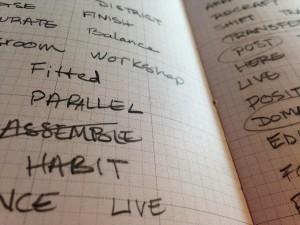 DISTRICT
URATE FINISH
Balance
sroom Workshop
Fitted
PARALLEL
ASSEMBLE
HABIT
NCE LIVE
SHIFT
TRANSFE
HERE
LIVE
POSIT
DOMA
ED